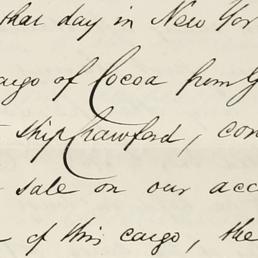 that day in New Yor
argo of Cocoa from G
ship Crawford, con
sale on our acc
of this cargo, the